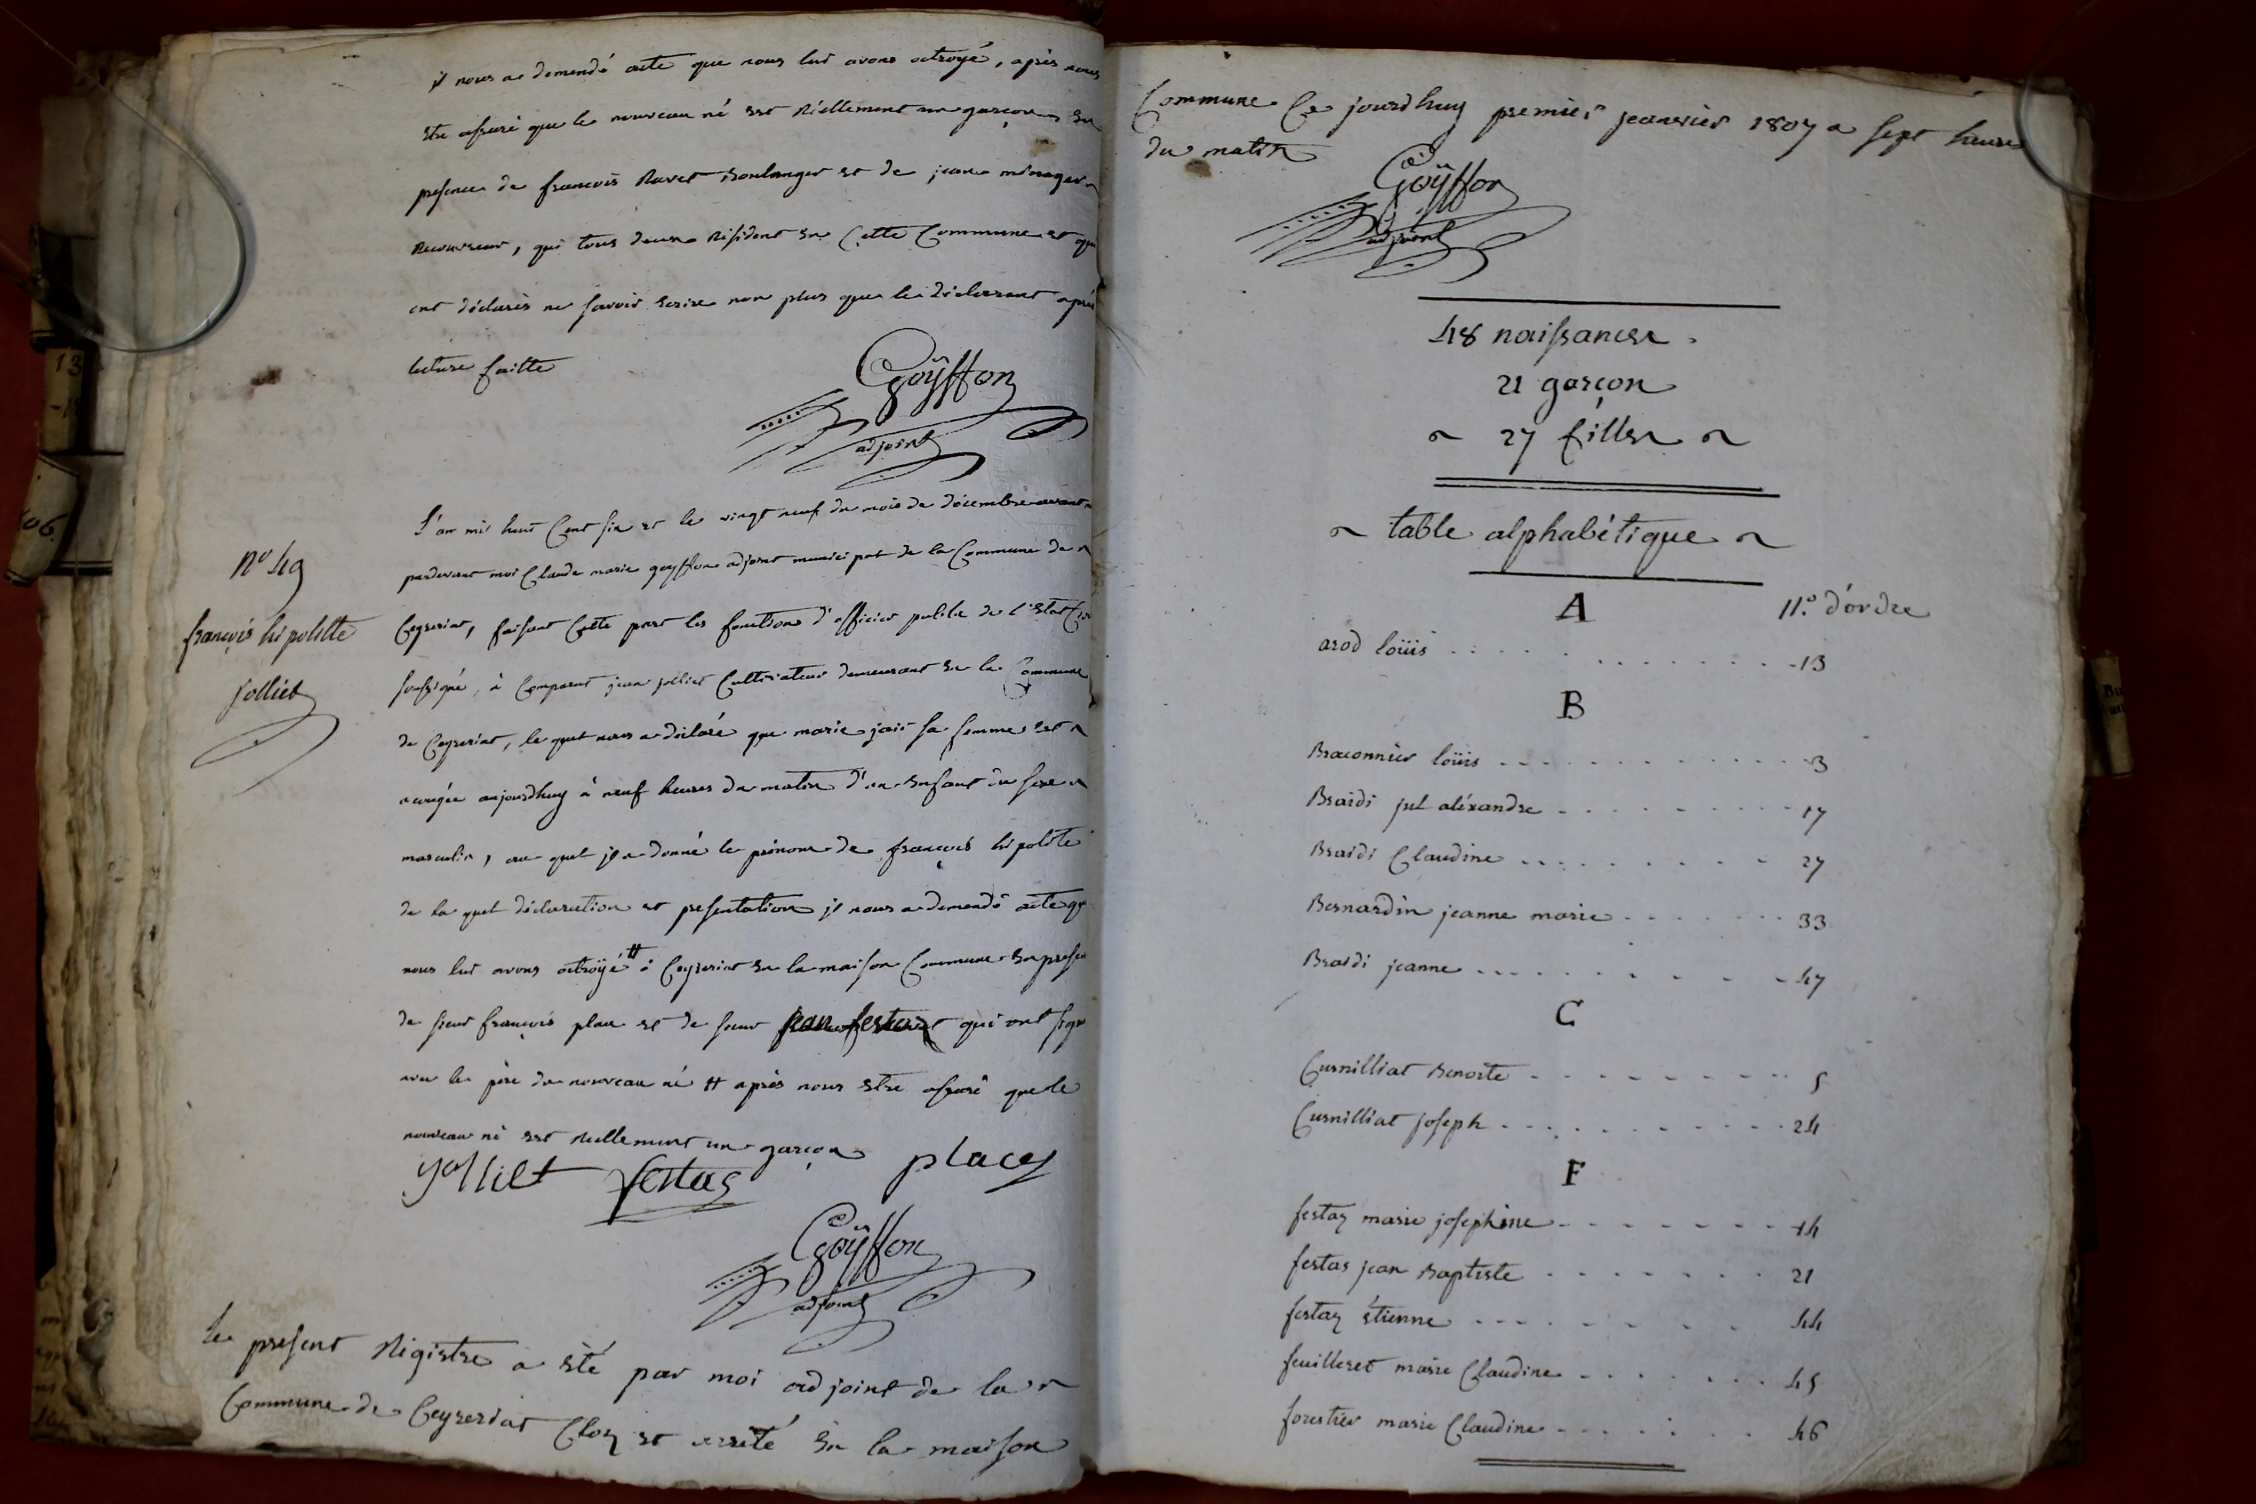 il nous a demendé acte que nous lui avons octroyé, après nous
etre assuré que le nouveau né est réellement un garçon, en
presence de françois Ravet Boulanger et de jean menager
Recouvreur, qui tous deux Résident en Cette Commune et qui
ont déclarés ne savoir Ecrire non plus que le Déclarant après
lecture faitte
Goÿffon
adjoint
L'an mil huit Cent six et le vingt neuf du mois de décembre avant
pardevant moi Claude marie goyffon adjoint municipal de la Commune de
Ceyseriat, faisant Cette part les fonctions d'officier public de l'Etat Civil
soussigné, à Comparut jean jolliet Cultivateur demeurant en la Commune
de Ceyseriat, le quel nous a déclaré que marie jais sa femme est
acougée aujourdhuy à neuf heures du matin d'un Enfant du sexe
masculin, au quel il a donné le prénom de françois hipolite
de la quel déclaration et presentation il nous a demendé acte que
nous lui avons octroÿé # à Ceyseriat en la maison Commune En presen
de sieur françois place et de sieur jean festaz qui ont signé
avec le père du nouveau né # après nous etre assuré que le
nouveau né est réellement un garçon
jolliet festas place
Goÿffon
adjoint
n° 49
françois hipolitte
jolliet
13
106
le present Régistre a été par moi adjoint de la
Commune de Ceyseriat Cloz et arreté en la maison
Commune Ce jourdhuy premier jeanvier 1807 a sept heures
du matin
Goÿffon
adjoint
48 naissances.
21 garçon
27 filles
table alphabétique
A n.° d'ordre
arod loüis 13
B
Braconnier loüis 3
Braidi jul aléxandre 17
Braidi Claudine 27
Bernardin jeanne marie 33
Braidi jeanne 47
C
Curnilliat Benoite 5
Curnilliat joseph 24
F
festaz marie josephine 14
festas jean Baptiste 21
festaz étienne 44
feuilleret marie Claudine 45
forestier marie Claudine 46